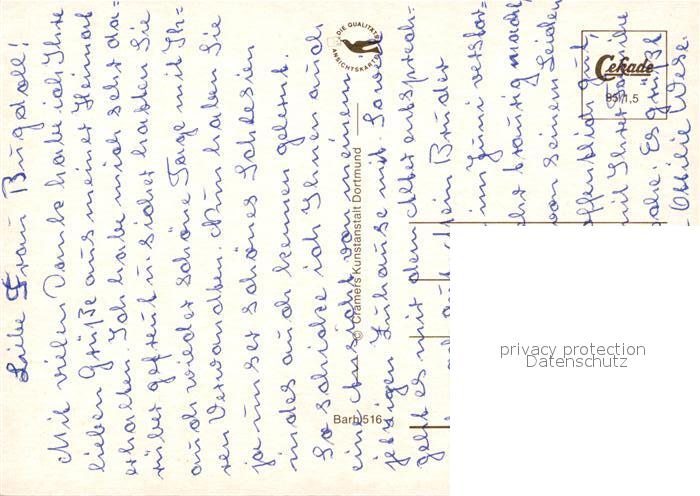 Liebe Frau Bugdoll!
Mit vielen Dank habe ich Ihre
lieben Grüße aus meiner Heimat
erhalten. Ich habe mich sehr da-
rüber gefreut u. sicher hatten Sie
auch wieder schöne Tage mit Ih-
ren Verwandten. Nun haben Sie
ja unser schönes Schlesien
indes auch kennen gelernt.
So schicke ich Ihnen auch
eine Ansicht von meinem
jetzigen Zuhause mit. Sonst
geht es mir dem Alter entsprech-
Mein Bruder
im Juni verstor-
traurig macht,
von seinem Leiden
offentlich gut,
mit Ihrer Familie
Es grüßt
Ottilie Wese
DIE QUALITÄTS
ANSICHTSKARTE
© Cramers Kunstanstalt Dortmund
Barb 516
Cekade
95/1,5
privacy protection
Datenschutz